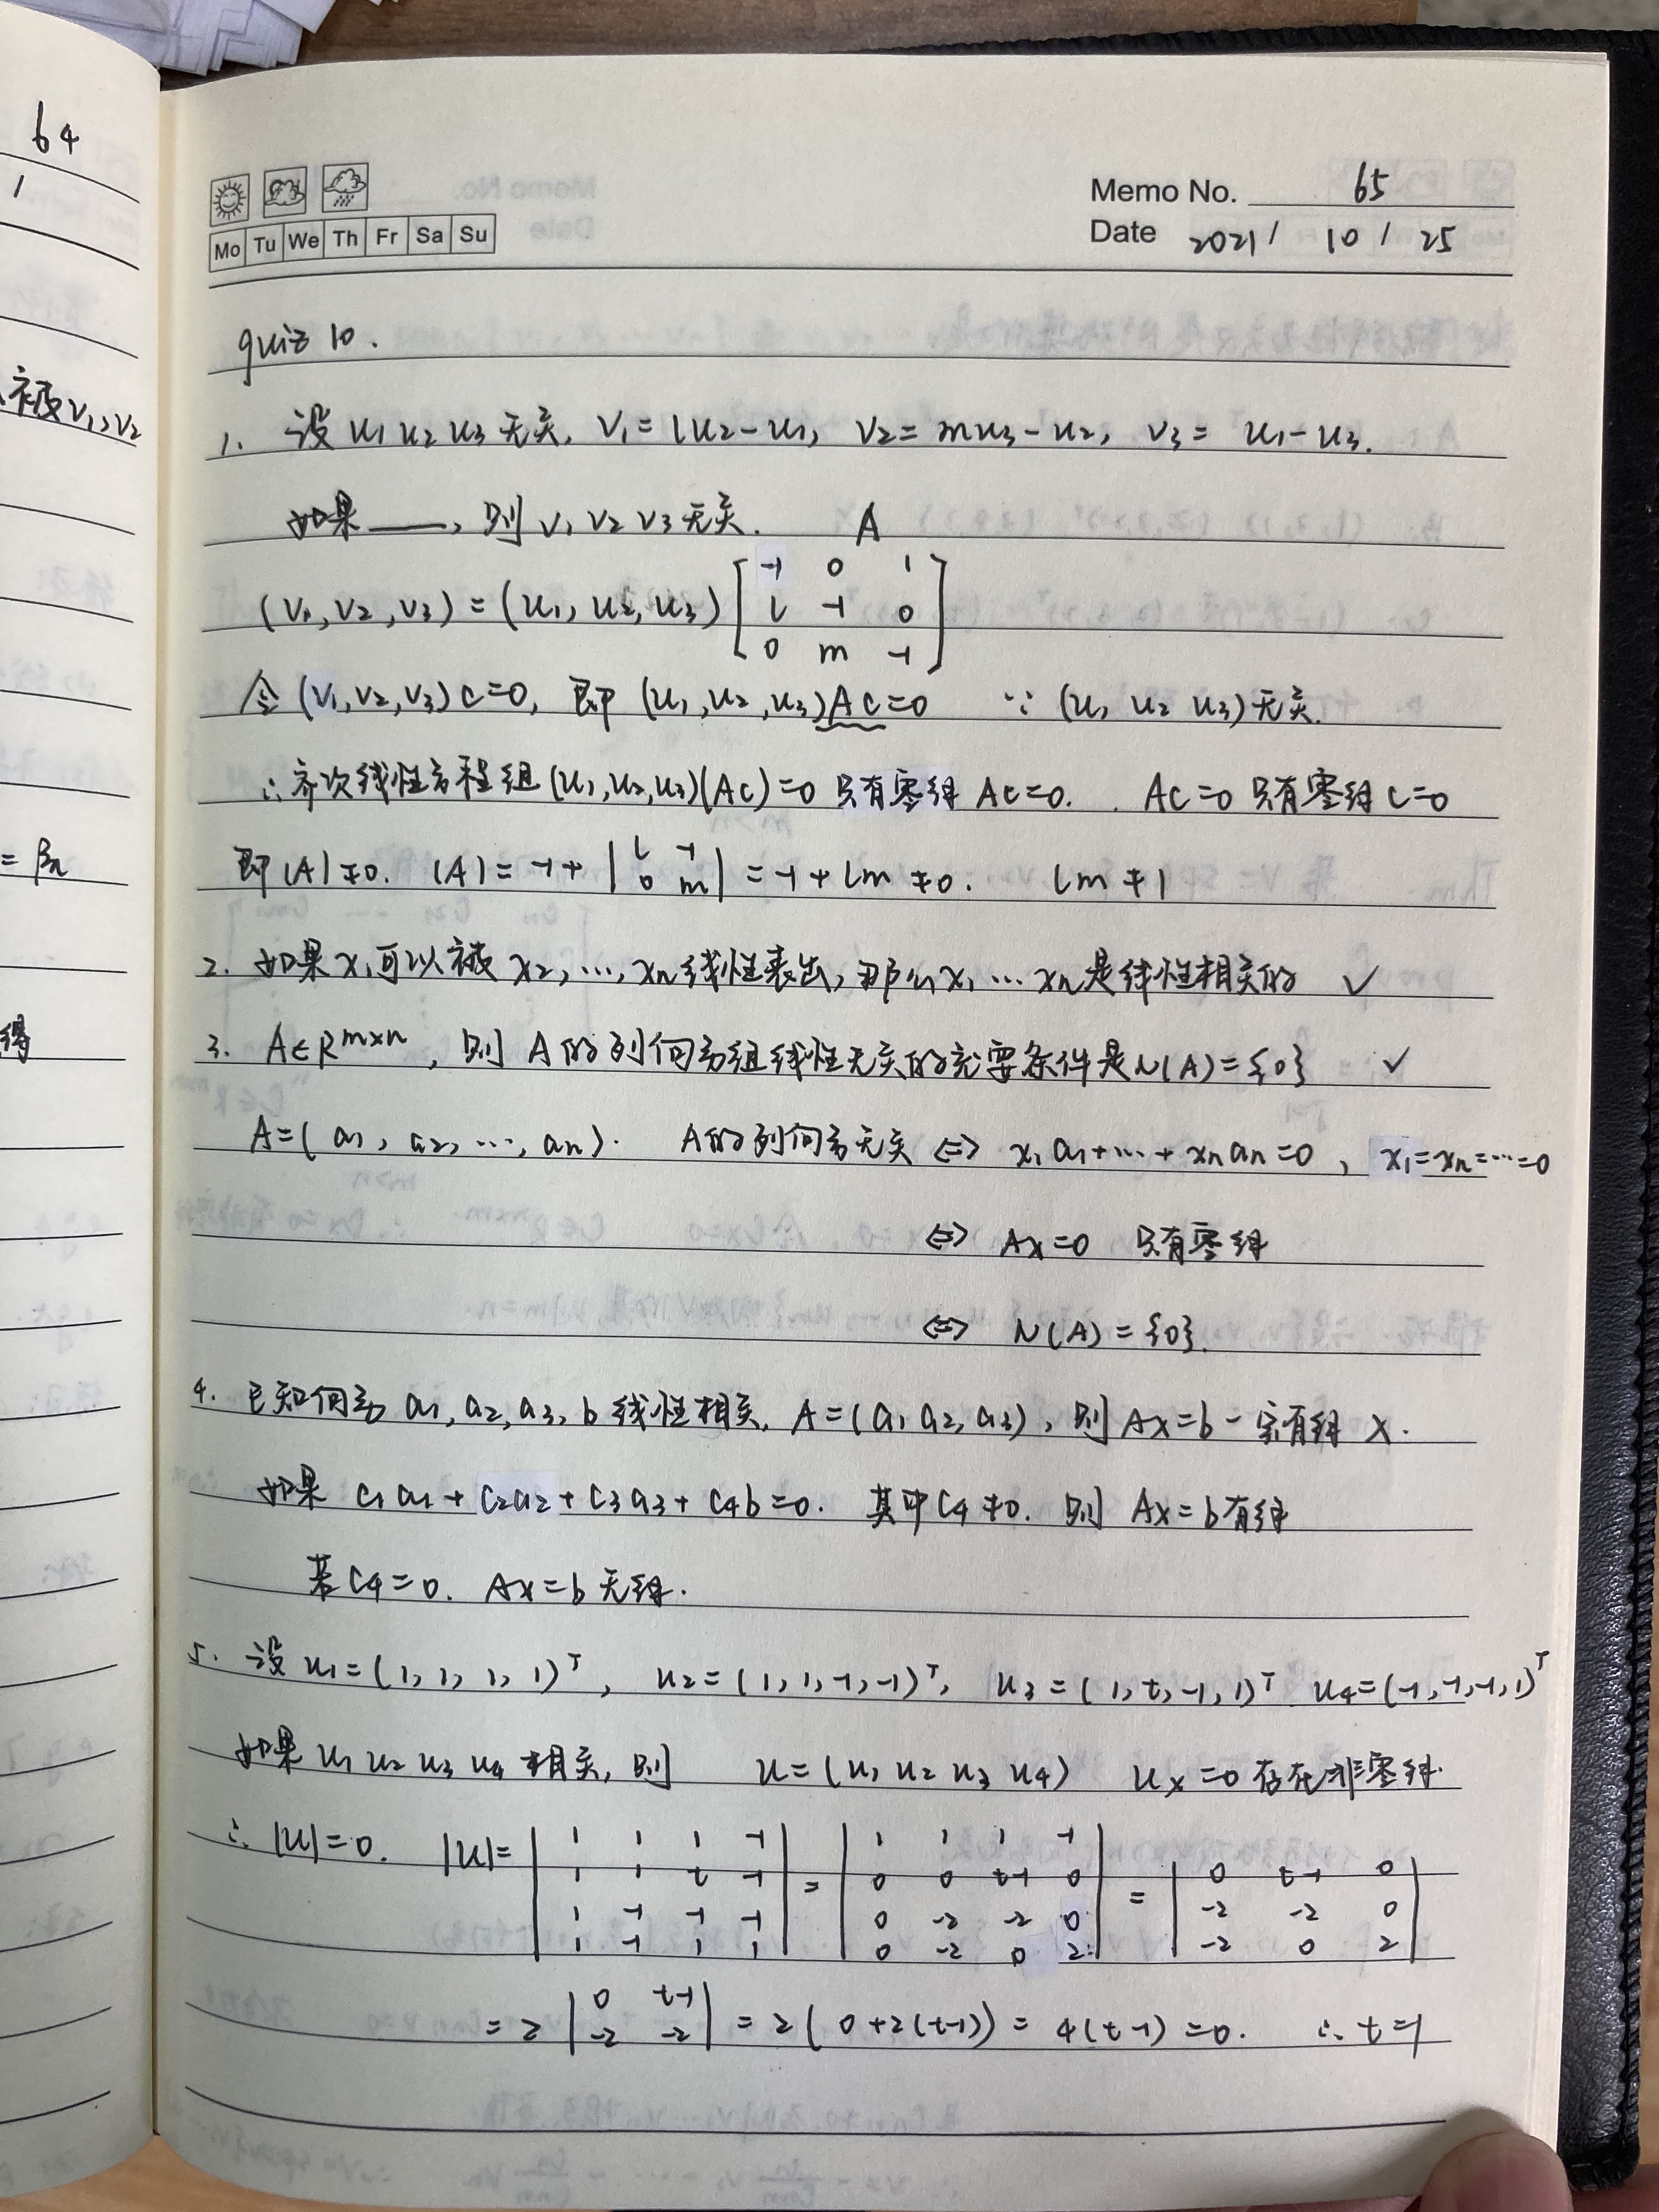 64
1
被v₁,v₂
= βn
得
Mo Tu We Th Fr Sa Su
Memo No. 65
Date 2021 / 10 / 25
quiz 10.
1. 设 u₁ u₂ u₃ 无关, v₁ = lu₂ - u₁, v₂ = mu₃ - u₂, v₃ = u₁ - u₃.
如果 ___, 则 v₁ v₂ v₃ 无关. A
(v₁, v₂, v₃) = (u₁, u₂, u₃) [ -1 0 1
l -1 0
0 m -1 ]
令 (v₁, v₂, v₃) c = 0, 即 (u₁, u₂, u₃) Ac = 0 ∵ (u₁ u₂ u₃) 无关.
∴ 齐次线性方程组 (u₁, u₂, u₃)(Ac) = 0 只有零解 Ac = 0. Ac = 0 只有零解 c = 0
即 |A| ≠ 0. |A| = -1 + | l -1
0 m | = -1 + lm ≠ 0. lm ≠ 1
2. 如果 x₁ 可以被 x₂, …, xn 线性表出, 那么 x₁ … xn 是线性相关的 ✓
3. A∈R^{m×n}, 则 A 的列向量组线性无关的充要条件是 N(A) = {0} ✓
A = (a₁, a₂, …, an). A的列向量无关 ⇔ x₁a₁ + … + xn an = 0, x₁ = xn = … = 0
⇔ Ax = 0 只有零解
⇔ N(A) = {0}.
4. 已知向量 a₁, a₂, a₃, b 线性相关. A = (a₁ a₂, a₃), 则 Ax = b 一定有解 x.
如果 c₁a₁ + c₂a₂ + c₃a₃ + c₄b = 0. 其中 c₄ ≠ 0. 则 Ax = b 有解
若 c₄ = 0. Ax = b 无解.
5. 设 u₁ = (1, 1, 1, 1)ᵀ, u₂ = (1, 1, -1, -1)ᵀ, u₃ = (1, t, -1, 1)ᵀ u₄ = (-1, -1, -1, 1)ᵀ
如果 u₁ u₂ u₃ u₄ 相关, 则 u = (u₁ u₂ u₃ u₄) ux = 0 存在非零解.
∴ |u| = 0. |u| = | 1 1 1 -1 | = | 1 1 1 -1 | = | 0 t-1 0 |
| 1 1 t -1 | | 0 0 t-1 0 | | -2 -2 0 |
| 1 -1 -1 -1 | | 0 -2 -2 0 | | -2 0 2 |
| 1 -1 1 1 | | 0 -2 0 2 |
= 2 | 0 t-1
-2 -2 | = 2 ( 0 + 2(t-1)) = 4(t-1) = 0. ∴ t = 1